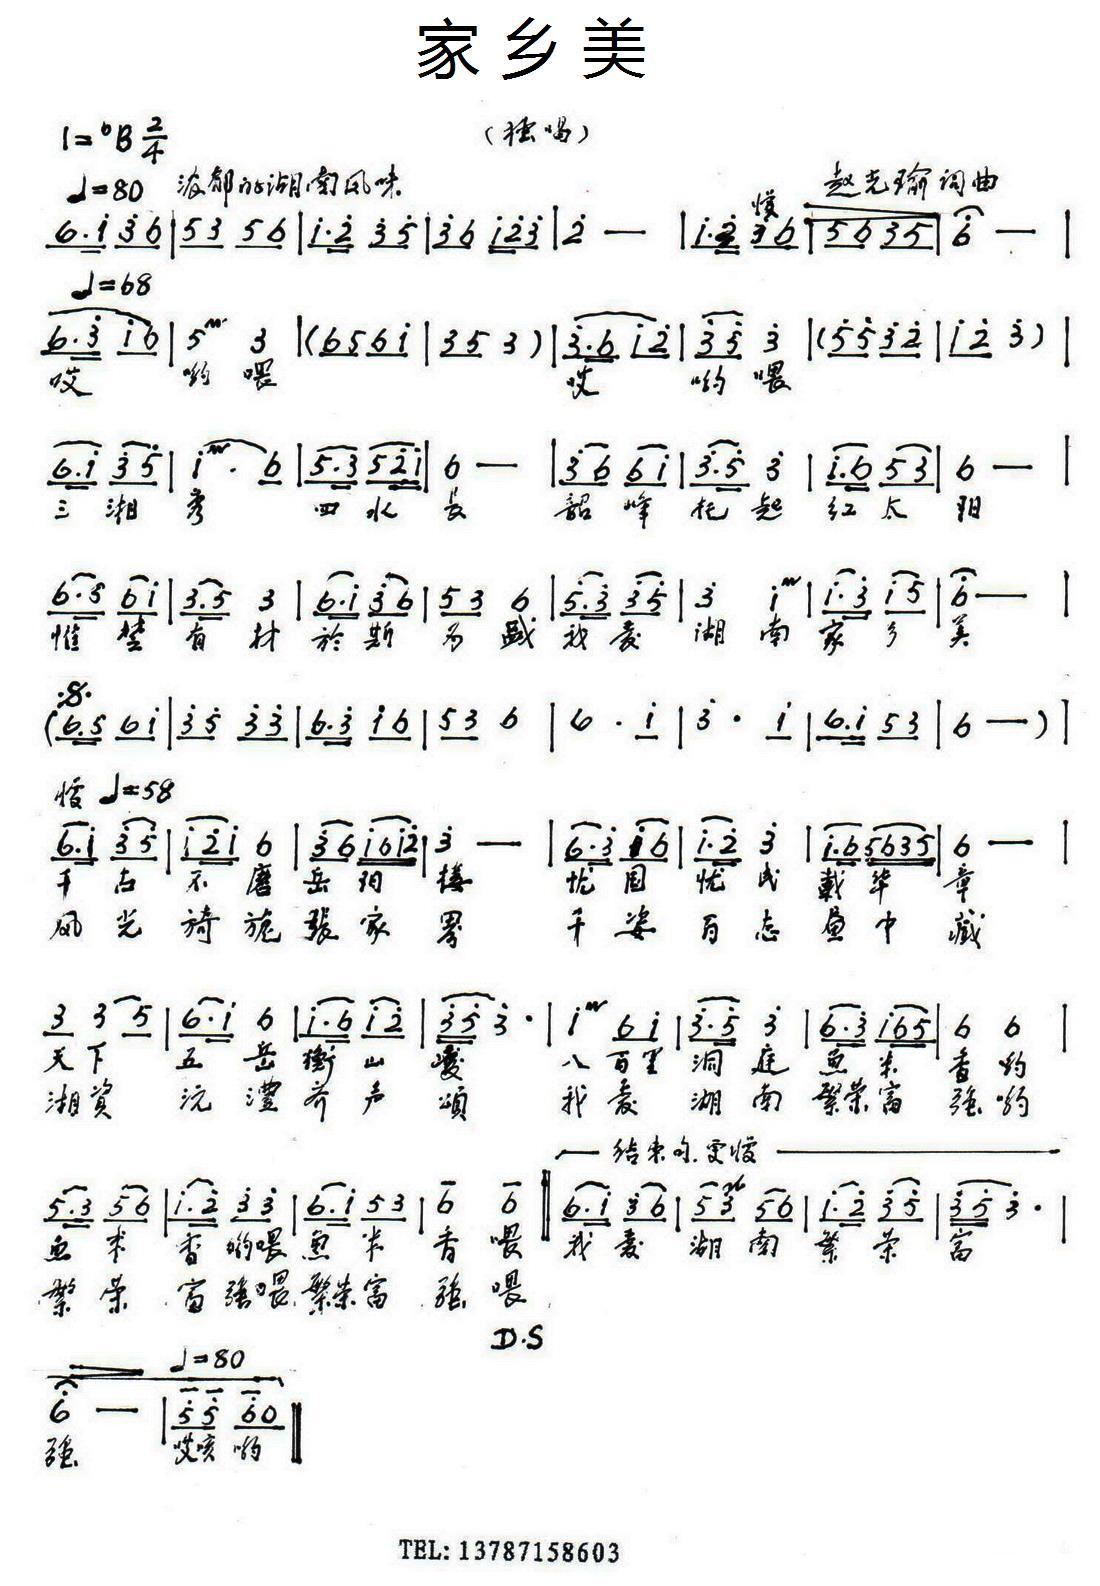 家乡美
1=♭B 2/4 （独唱）
♩=80 浓郁的湖南风味 赵光瑜词曲
慢
6·i 36 | 53 56 | i·2 35 | 36 i23 | 2 — | i·2 36 | 56 35 | 6 — |
♩=68
6·3 i6 | 5 3 | (6561 | 35 3) | 3·6 i2 | 35 3 | (5532 | i2 3) |
哎 哟喂 哎 哟喂
6·i 35 | i· 6 | 5·3 52i | 6 — | 36 6i | 3·5 3 | i·6 53 | 6 — |
三湘秀 四水长 韶峰托起红太阳
6·5 6i | 3·5 3 | 6·i 36 | 53 6 | 5·3 35 | 3 i | i·3 i5 | 6 — |
惟楚有材於斯 盛我爱湖南家乡美
(6·5 6i | 35 33 | 6·3 i6 | 53 6 | 6· i | 3· i | 6·i 53 | 6 —) |
慢 ♩=58
6·i 35 | i2i 6 | 36 i6i2 | 3 — | 6·3 i6 | i·2 3 | i·6 5635 | 6 — |
千古不磨岳阳楼 忧国忧民载华章
风光旖旎张家界 千姿百态 中藏
3 3 5 | 6·i 6 | i·6 i2 | 35 3· | i 6i | 3·5 3 | 6·3 i65 | 6 6 |
天下五岳衡山 八百里洞庭鱼米香哟
湘资沅澧齐声颂 我爱湖南繁荣富强哟
结束句更慢
5·3 56 | i·2 33 | 6·i 53 | 6 6 || 6·i 36 | 53 56 | i·2 35 | 35 3· |
鱼米香哟喂鱼米香喂 我爱湖南繁荣富
繁荣富强喂繁荣富强喂
D.S
♩=80
6 — | 55 60 ||
强 哎咳哟
TEL: 13787158603